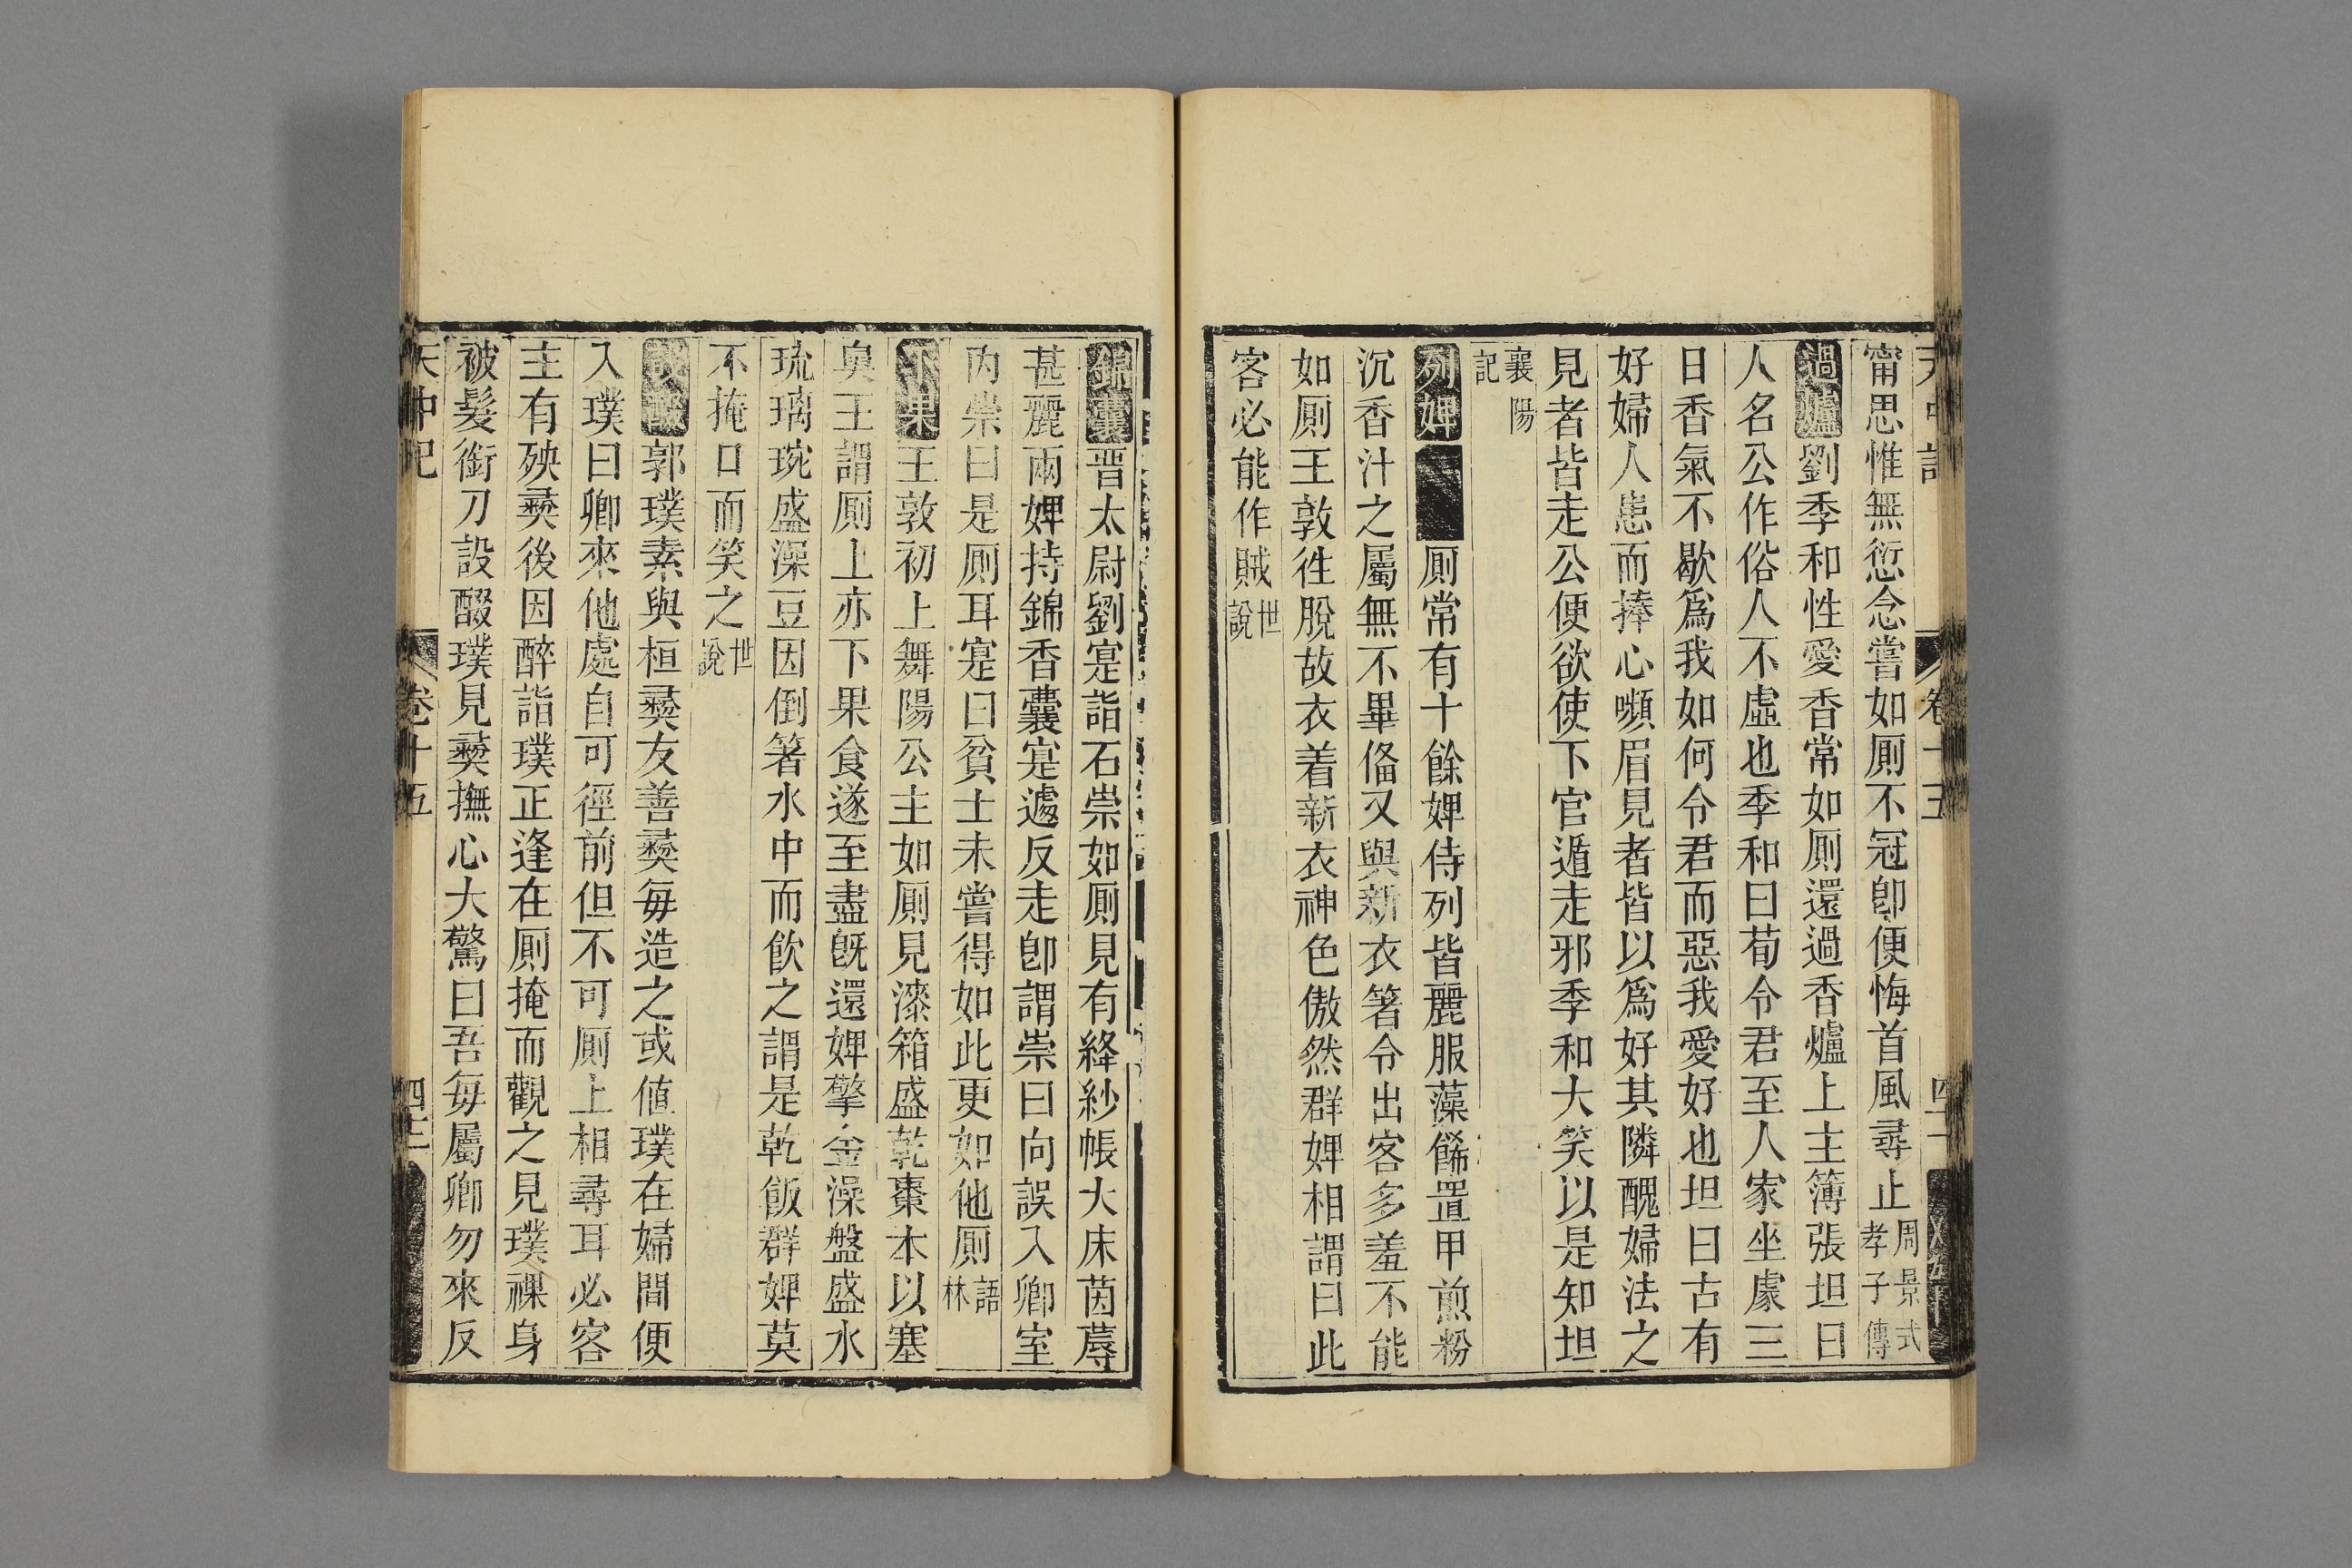 天中記 卷十五
甯思惟無愆念嘗如厠不冠卽便悔首風尋止周景式孝子傳
過爐劉季和性愛香常如厠還過香爐上主簿張坦曰
人名公作俗人不虛也季和曰荀令君至人家坐處三
日香氣不歇爲我如何令君而惡我愛好也坦曰古有
好婦人患而捧心嚬眉見者皆以爲好其隣醜婦法之
見者皆走公便欲使下官遁走邪季和大笑以是知坦
襄陽記
列婢厠常有十餘婢侍列皆麗服藻餙置甲煎粉
沉香汁之屬無不畢俻又與新衣箸令出客多羞不能
如厠王敦徃脫故衣着新衣神色傲然群婢相謂曰此
客必能作賊世說
錦囊晋太尉劉寔詣石崇如厠見有絳紗帳大床茵蓐
甚麗兩婢持錦香囊寔遽反走卽謂崇曰向誤入卿室
內崇曰是厠耳寔曰貧士未嘗得如此更如他厠語林
下果王敦初上舞陽公主如厠見漆箱盛乾棗本以塞
臭王謂厠上亦下果食遂至盡旣還婢擎金澡盤盛水
琉璃琓盛澡豆因倒箸水中而飲之謂是乾飯群婢莫
不掩口而笑之世說
設醊郭璞素與桓彛友善彛每造之或値璞在婦間便
入璞曰卿來他處自可徑前但不可厠上相尋耳必客
主有殃彛後因醉詣璞正逢在厠掩而觀之見璞祼身
被髮銜刀設醊璞見彛撫心大驚曰吾每屬卿勿來反
天中記 卷十五